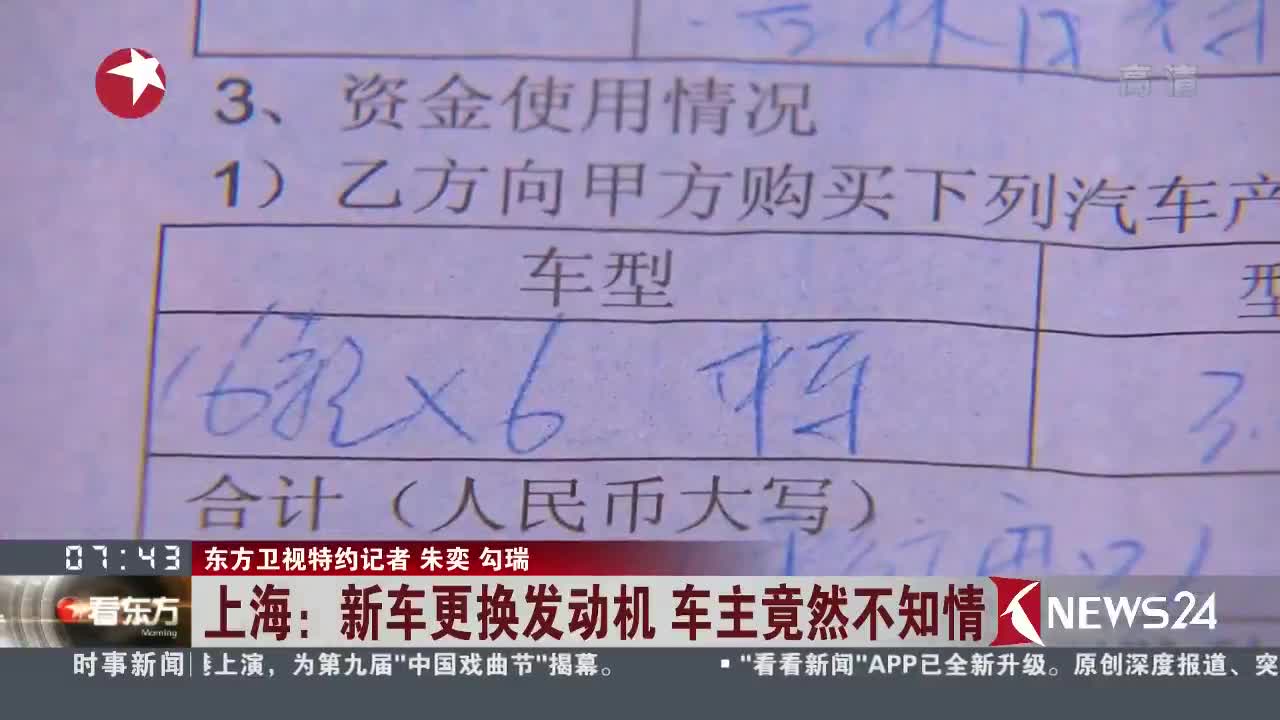 高清
3、资金使用情况
1）乙方向甲方购买下列汽车产
车型
型
16款X6 中东
3.
合计（人民币大写）
07:43
东方卫视特约记者 朱奕 勾瑞
看东方
Morning
上海：新车更换发动机 车主竟然不知情
KNEWS24
时事新闻
港上演，为第九届"中国戏曲节"揭幕。
▪"看看新闻"APP已全新升级。原创深度报道、突